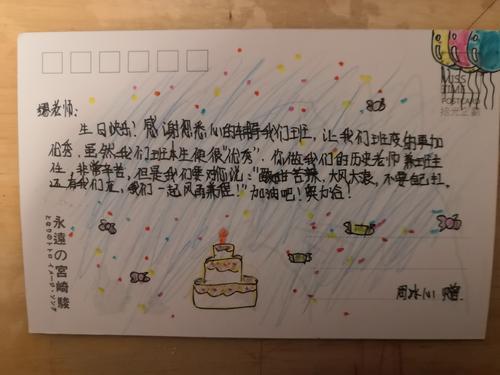 老师:
生日快乐!感谢您悉心的带领我们班,让我们班变的更加
优秀,虽然我们班本生便很“优秀”.你做我们的历史老师兼班主
任,非常辛苦,但是我们要对你说:“酸甜苦辣,大风大浪,不要自扛,
还有我们在,我们一起风雨兼程!”加油吧!奥力给!
周冰心 赠.
永遠の宮崎駿
となりのトトロ イメージ・ソング
MISS
TIME
POSTCARD